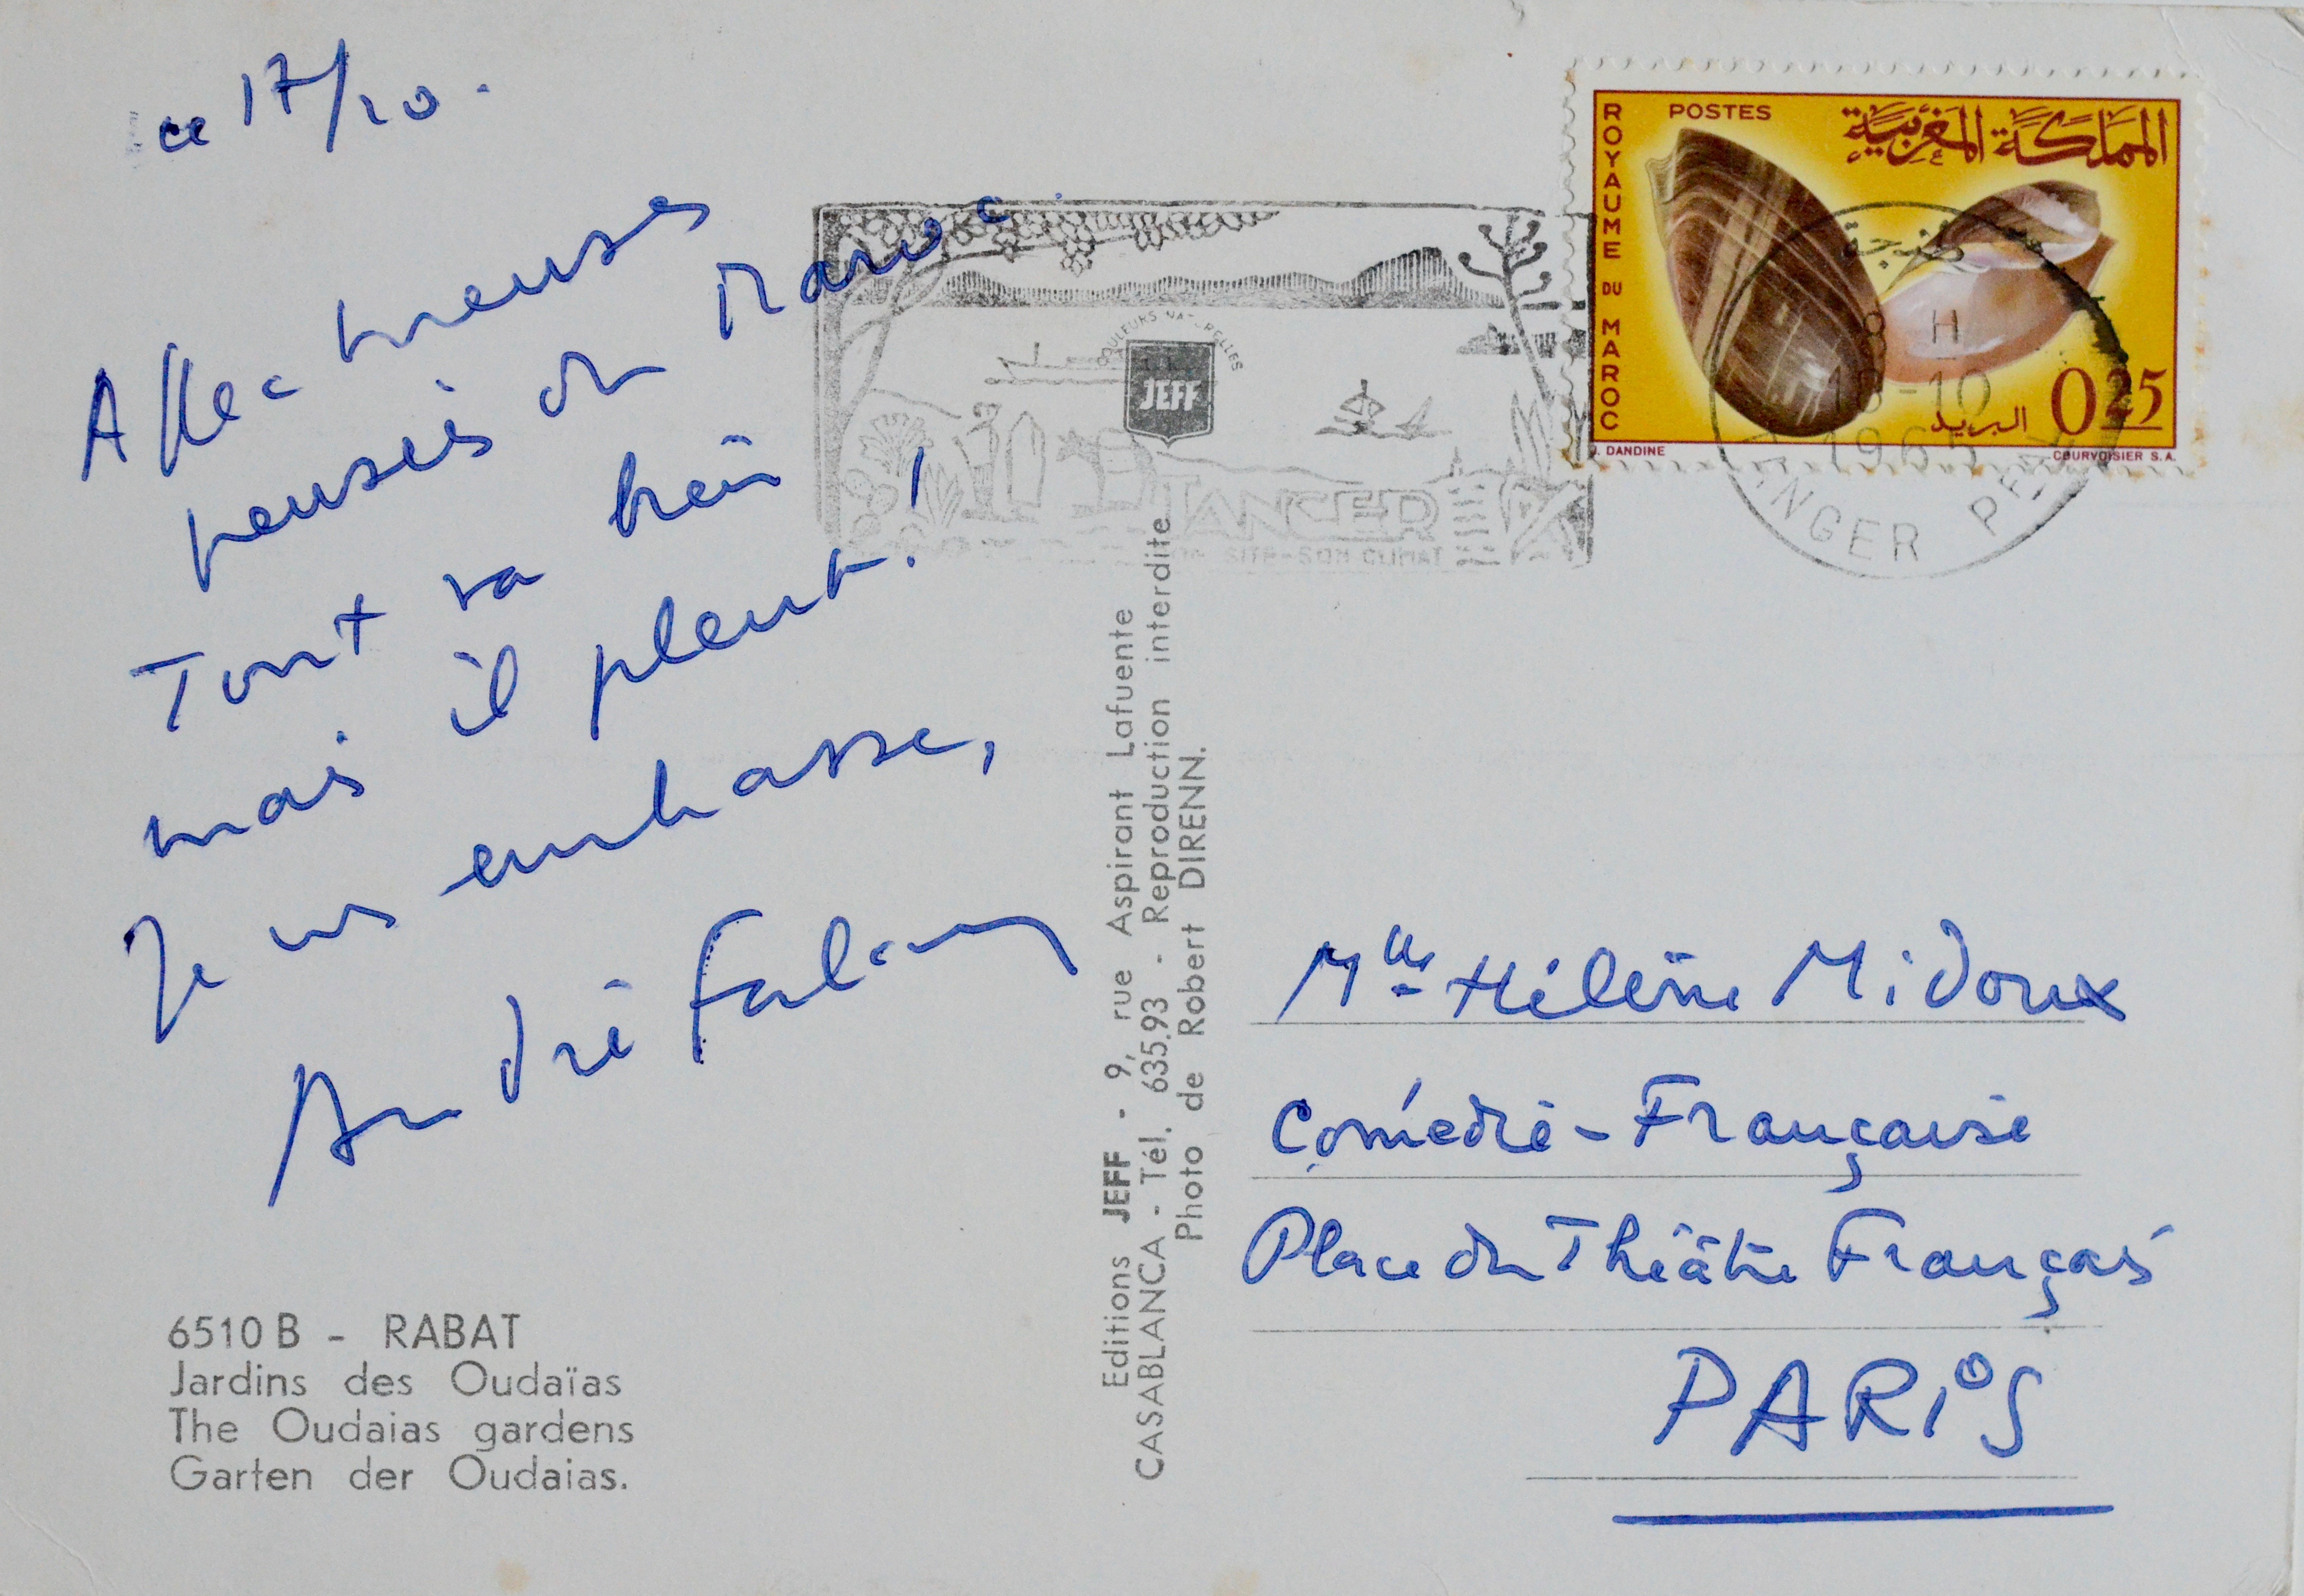 ce 17/10.
Affectueuses
pensées du Maroc.
Tout va bien
mais il pleut !
Je vs embrasse,
André Falcon
6510 B - RABAT
Jardins des Oudaïas
The Oudaias gardens
Garten der Oudaias.
Editions JEFF - 9, rue Aspirant Lafuente
CASABLANCA - Tél. 635.93 - Reproduction interdite
Photo de Robert DIRENN.
COULEURS NATURELLES
JEFF
TANGER
SON SITE-SON CLIMAT
POSTES
المملكة المغربية
ROYAUME DU MAROC
البريد 0.25
J. DANDINE
COURVOISIER S.A.
طنجة
8 H
18-10
1965
TANGER
Mlle Hélène Midoux
Comédie-Française
Place du Théâtre Français
PARIS